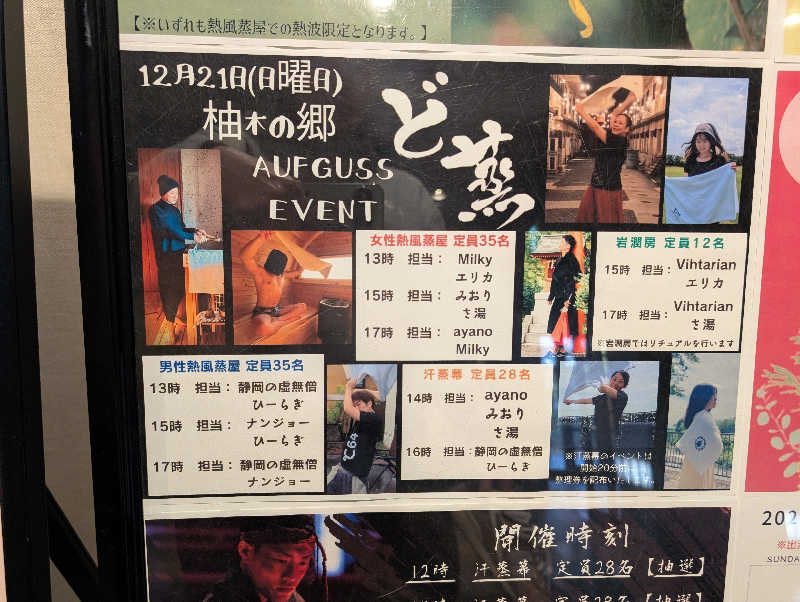 【※いずれも熱風蒸屋での熱波限定となります。】
12月21日(日曜日)
柚木の郷
AUFGUSS
EVENT
ど蒸
女性熱風蒸屋 定員35名
13時 担当： Milky
エリカ
15時 担当： みおり
さ湯
17時 担当： ayano
Milky
岩潤房 定員12名
15時 担当： Vihtarian
エリカ
17時 担当： Vihtarian
さ湯
※岩潤房ではリチュアルを行います
男性熱風蒸屋 定員35名
13時 担当： 静岡の虚無僧
ひーらぎ
15時 担当： ナンジョー
ひーらぎ
17時 担当： 静岡の虚無僧
ナンジョー
汗蒸幕 定員28名
14時 担当： ayano
みおり
さ湯
16時 担当：静岡の虚無僧
ひーらぎ
※汗蒸幕のイベントは
開始20分前
整理券を配布いたします。
℃64
開催時刻
12時 汗蒸幕 定員28名【抽選】
汗蒸幕 定員28名【抽選】
202
※出
SUNDA